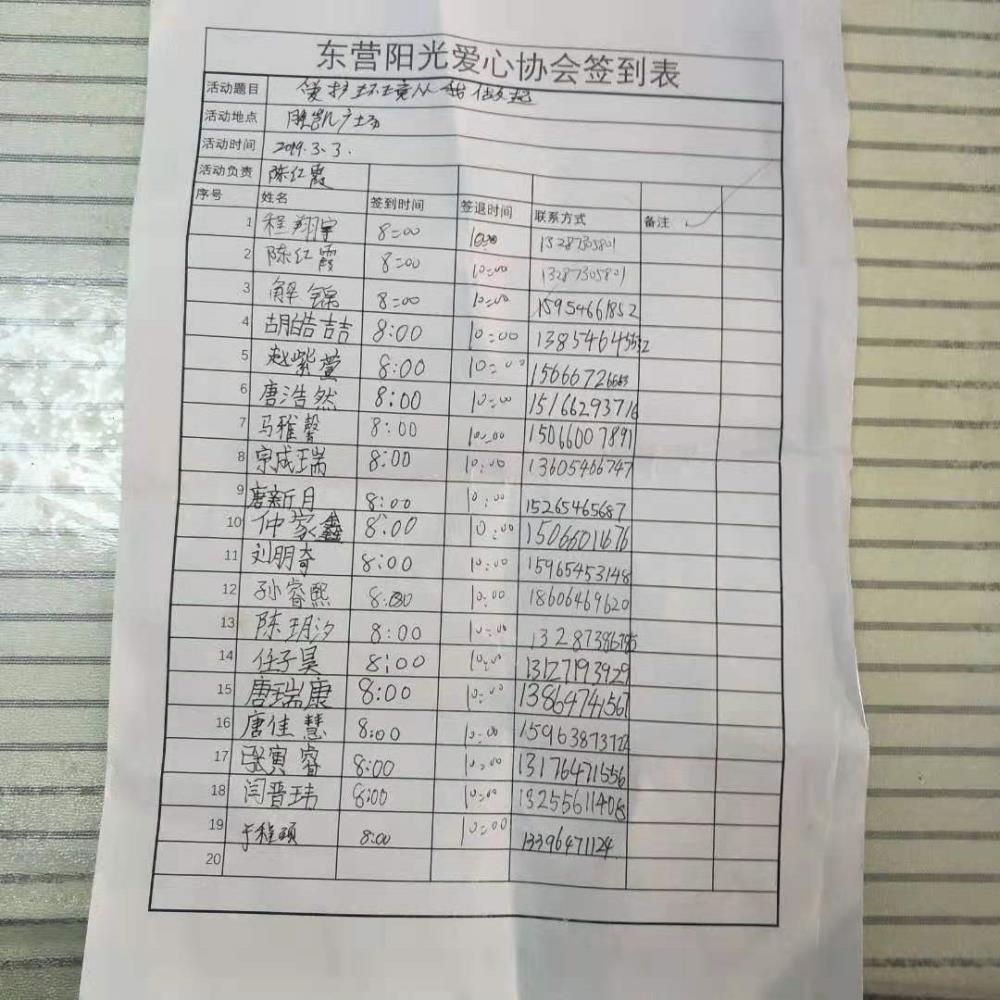 东营阳光爱心协会签到表
活动题目 爱护环境从我做起
活动地点 胜凯广场
活动时间 2019.3.3.
活动负责 陈红霞
序号 姓名 签到时间 签退时间 联系方式 备注
1 程翔宇 8:00 10:00 13287305801
2 陈红霞 8:00 10:00 13287305801
3 解锦 8:00 10:00 15954661852
4 胡皓喆 8:00 10:00
5 赵紫萱 8:00 10:00
6 唐浩然 8:00 10:00 15166293716
7 马稚馨 8:00 10:00 15066007891
8 宗成瑞 8:00 10:00 13605466747
9 唐新月 8:00 10:00 15265465687
10 仲家鑫 8:00 10:00 15066011676
11 刘朋奇 8:00 10:00 15965453148
12 孙睿熙 8:00 10:00 18606469620
13 陈玥汐 8:00 10:00
14 任子昊 8:00 10:00 13127193929
15 唐瑞康 8:00 10:00 13864741561
16 唐佳慧 8:00 10:00
17 张寅睿 8:00 10:00 13176471556
18 闫晋玮 8:00 10:00
19 于程硕 8:00 10:00 13396471124
20